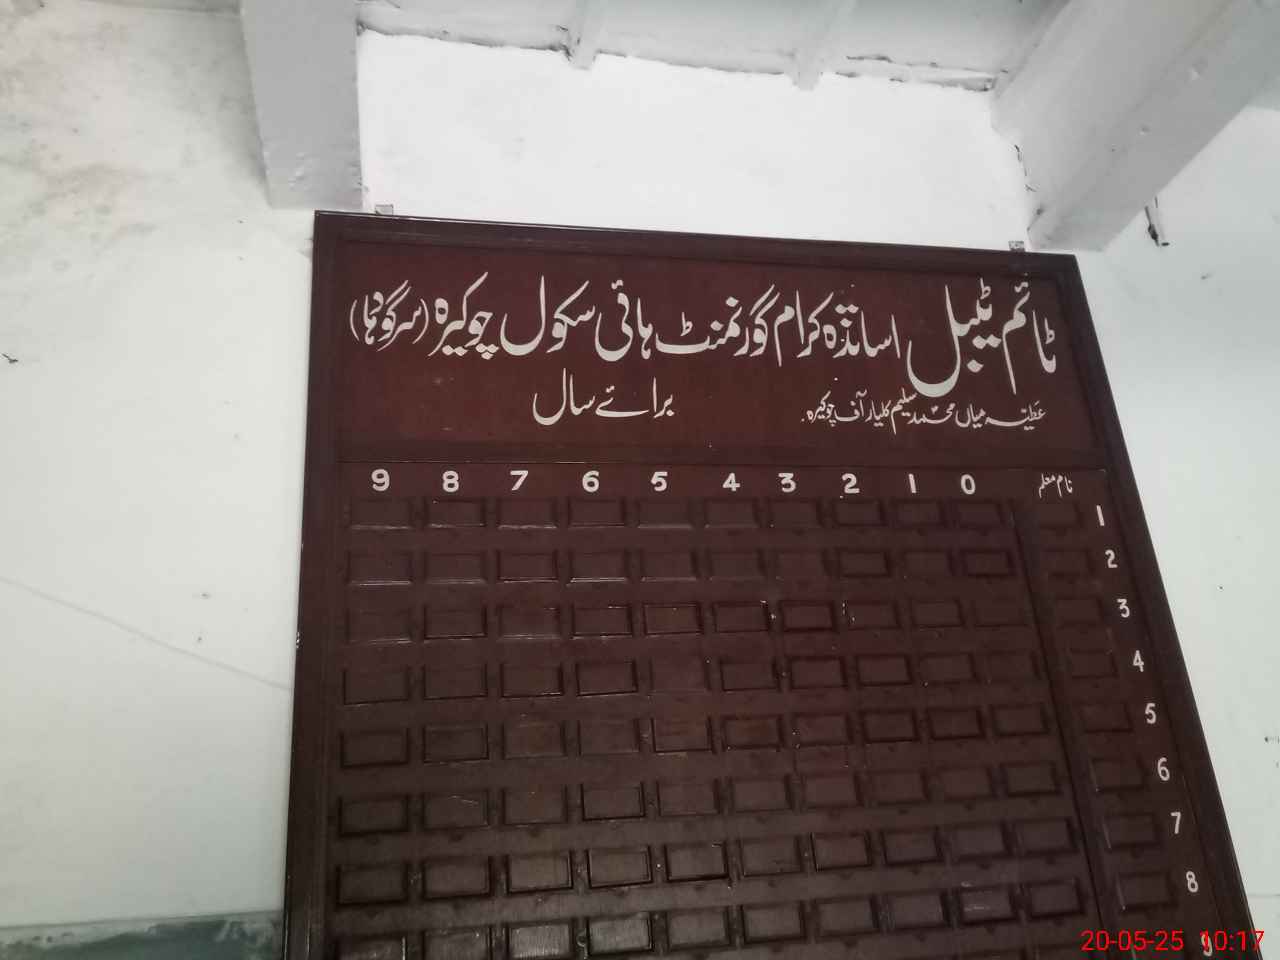 ٹائم ٹیبل اساتذہ کرام گورنمنٹ ہائی سکول چوکیرہ (سرگودہا)
عطیہ میاں محمد سلیم کلیار آف چوکیرہ.
برائے سال
نام معلم 0 1 2 3 4 5 6 7 8 9
1
2
3
4
5
6
7
8
9
20-05-25 10:17